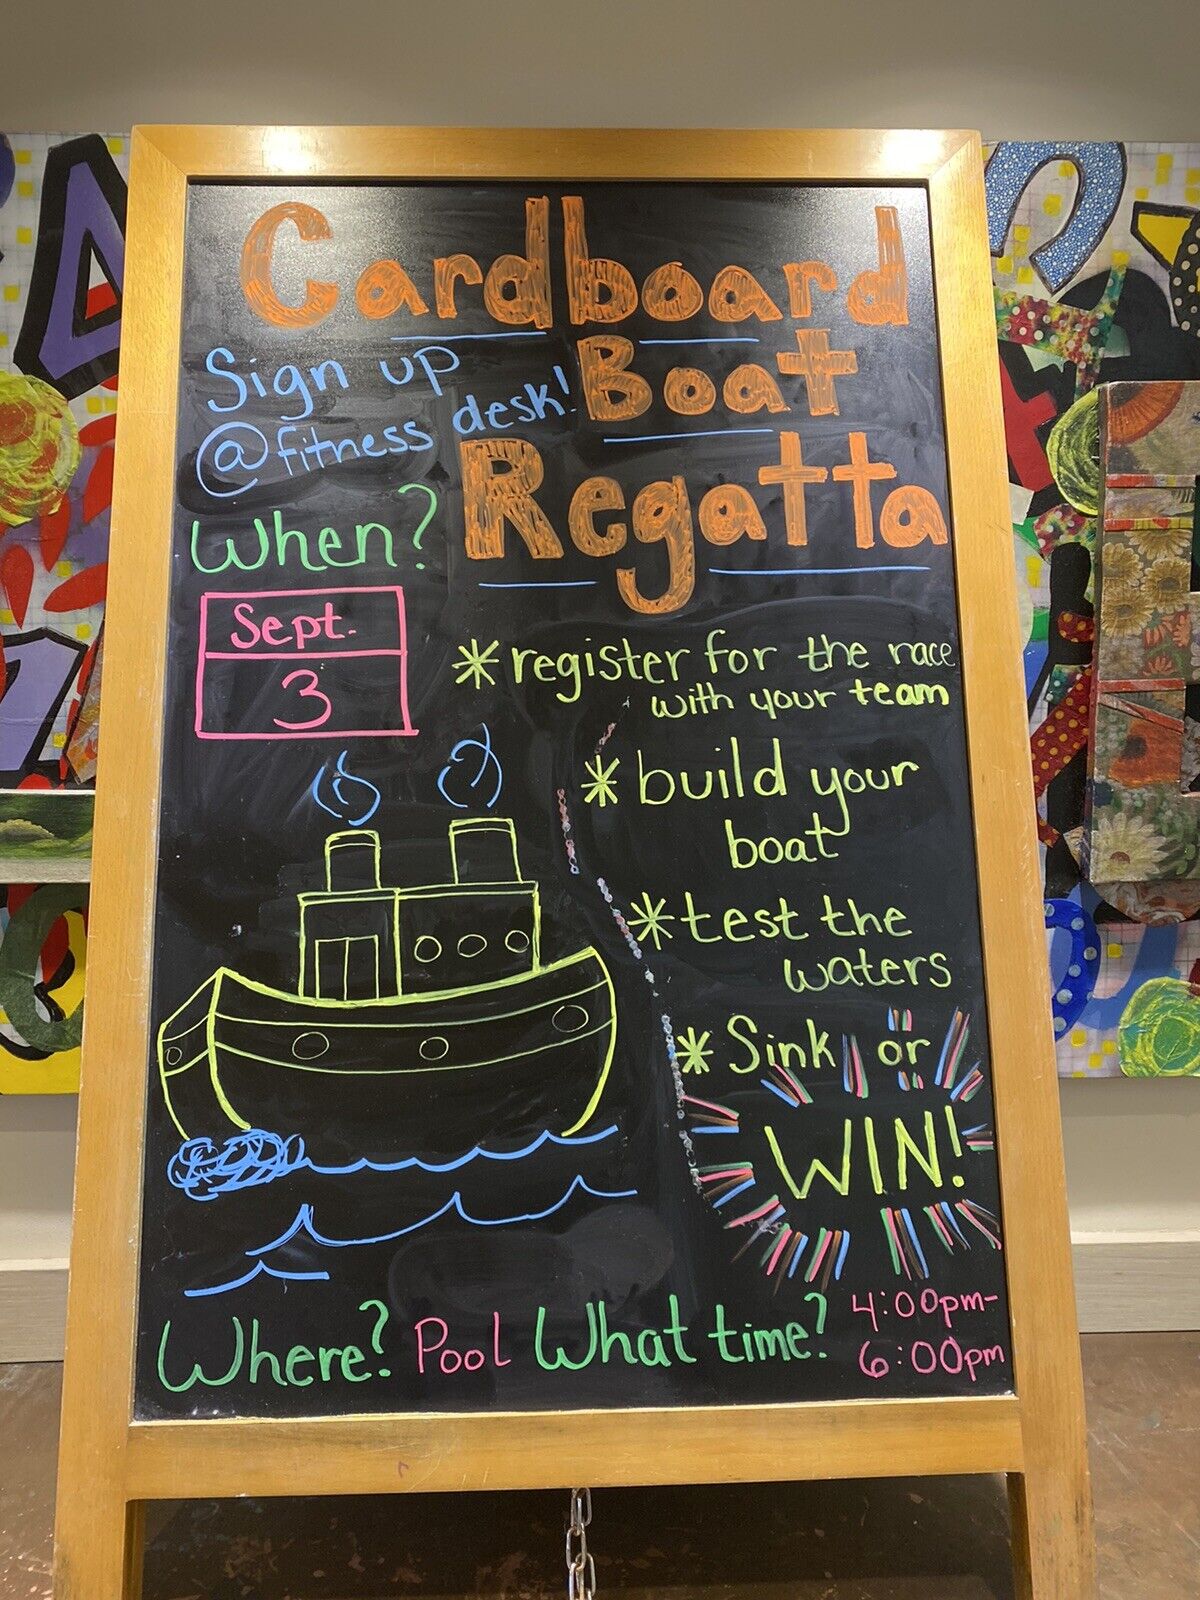 Cardboard
Boat
Regatta
Sign up
@fitness desk!
When?
Sept.
3
*register for the race
with your team
*build your
boat
*test the
waters
*Sink or
WIN!
Where? Pool What time? 4:00pm-
6:00pm